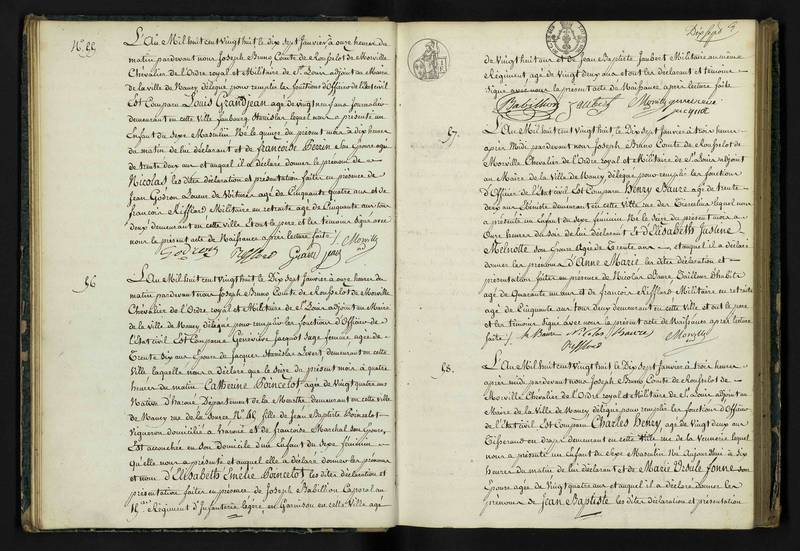 L'An Mil huit cent Vingt huit le Dix sept Janvier à onze heures du
matin pardevant nous Joseph Bruno Comte de Rousselot de Morville
Chevalier de l'Ordre royal et Militaire de St Louis adjoint au Maire
de la ville de Nancy délégué pour remplir les fonctions d'Officier de l'état civil
Est Comparu Louis Grandjean agé de vingt neuf ans Journalier
demeurant en cette Ville faubourg Stanislas lequel nous a présenté un
Enfant du Sexe Masculin Né le quinze du présent mois à dix heures
du matin de lui déclarant et de françoise Perrin Son Epouse agée
de trente deux ans et auquel il a déclaré donner le prénom de
Nicolas les dites déclaration et présentation faites en présence de
Jean Godron Loueur de Voitures agé de Cinquante quatre ans et de
françois Rifflard Militaire en retraite agé de Cinquante un ans tous
deux demeurant en cette ville Et ont le pere et les témoins Signé avec
nous le présent acte de Naissance après lecture faite /.
Godron Rifflard Grand jean Morville
86
L'An Mil huit cent Vingt huit le Dix Sept Janvier à onze heures du
matin pardevant nous Joseph Bruno Comte de Rousselot de Morville
Chevalier de l'Ordre royal et Militaire de St Louis adjoint au Maire
de la Ville de Nancy délégué pour remplir les fonctions d'Officier de
l'état civil Est Comparue Geneviève Jacquot Sage femme agée de
Trente Six ans Epouse de Jacques Stanislas demeurant en cette
Ville laquelle nous a déclaré que le Seize du présent mois à quatre
heures du matin Catherine Poincelot agée de Vingt quatre ans
Native d'haroué Département de la Meurthe demeurant en cette ville
de Nancy rue de la Source No fille de Jean Baptiste Poincelot
Vigneron domicilié à haroué et de françoise Marchal son Epouse,
Est accouchée en Son domicile d'un Enfant du Sexe féminin
Qu'elle nous a présenté et auquel elle a déclaré donner les prénoms
et nom d'Elisabeth Emélie Poincelot les dites déclaration et
présentation faites en présence de Joseph Babillion Caporal au
Régiment d'Infanterie légère en Garnison en cette Ville agé
Dix sept
de Vingt huit ans et de Jean Baptiste Jaubert Militaire au même
Régiment agé de Vingt deux ans et ont les déclarant et témoins
Signé avec nous le présent acte de Naissance après lecture faite
Babillion Jaubert Morville
jacquot
87.
L'An Mil huit cent Vingt huit le Dix Sept Janvier à trois heures
après Midi pardevant nous Joseph Bruno Comte de Rousselot de
Morville Chevalier de l'Ordre royal et Militaire de St Louis adjoint
au Maire de la Ville de Nancy délégué pour remplir les fonctions
d'Officier de l'état civil Est Comparu Henry Baure agé de trente
deux ans Ebéniste demeurant en cette Ville rue des lequel nous
a présenté un Enfant du Sexe féminin Né le Seize du présent mois à
Onze heures du Soir de lui déclarant et d'Elisabeth Justine
son Epouse Agée de Trente ans et auquel il a déclaré
donner les prénoms d'Anne Marie les dites déclaration et
présentation faites en présence de Nicolas Baure Tailleur d'habits
agé de Quarante un ans et de françois Rifflard Militaire en retraite
agé de Cinquante un ans tous deux demeurant en cette Ville et ont le pere
et les témoins Signé avec nous le présent acte de Naissance après lecture
faite /. h Baure Nicolas Baure Morville
Rifflard
88.
L'An Mil huit cent Vingt huit le Dix Sept Janvier à trois heures
après midi pardevant nous Joseph Bruno Comte de Rousselot de
Morville Chevalier de l'Ordre royal et Militaire de St Louis adjoint au
Maire de la Ville de Nancy délégué pour remplir les fonctions d'Officier
de l'état civil Est Comparu Charles Henry agé de Vingt deux ans
Tisserand en draps demeurant en cette Ville rue de la Vennerie lequel
nous a présenté un Enfant du Sexe Masculin Né Aujourd'hui à Six
heures du matin de lui déclarant et de Marie Ursule fonne son
Epouse agée de Vingt quatre ans et auquel il a déclaré donner les
prénoms de Jean Baptiste les dites déclaration et présentation